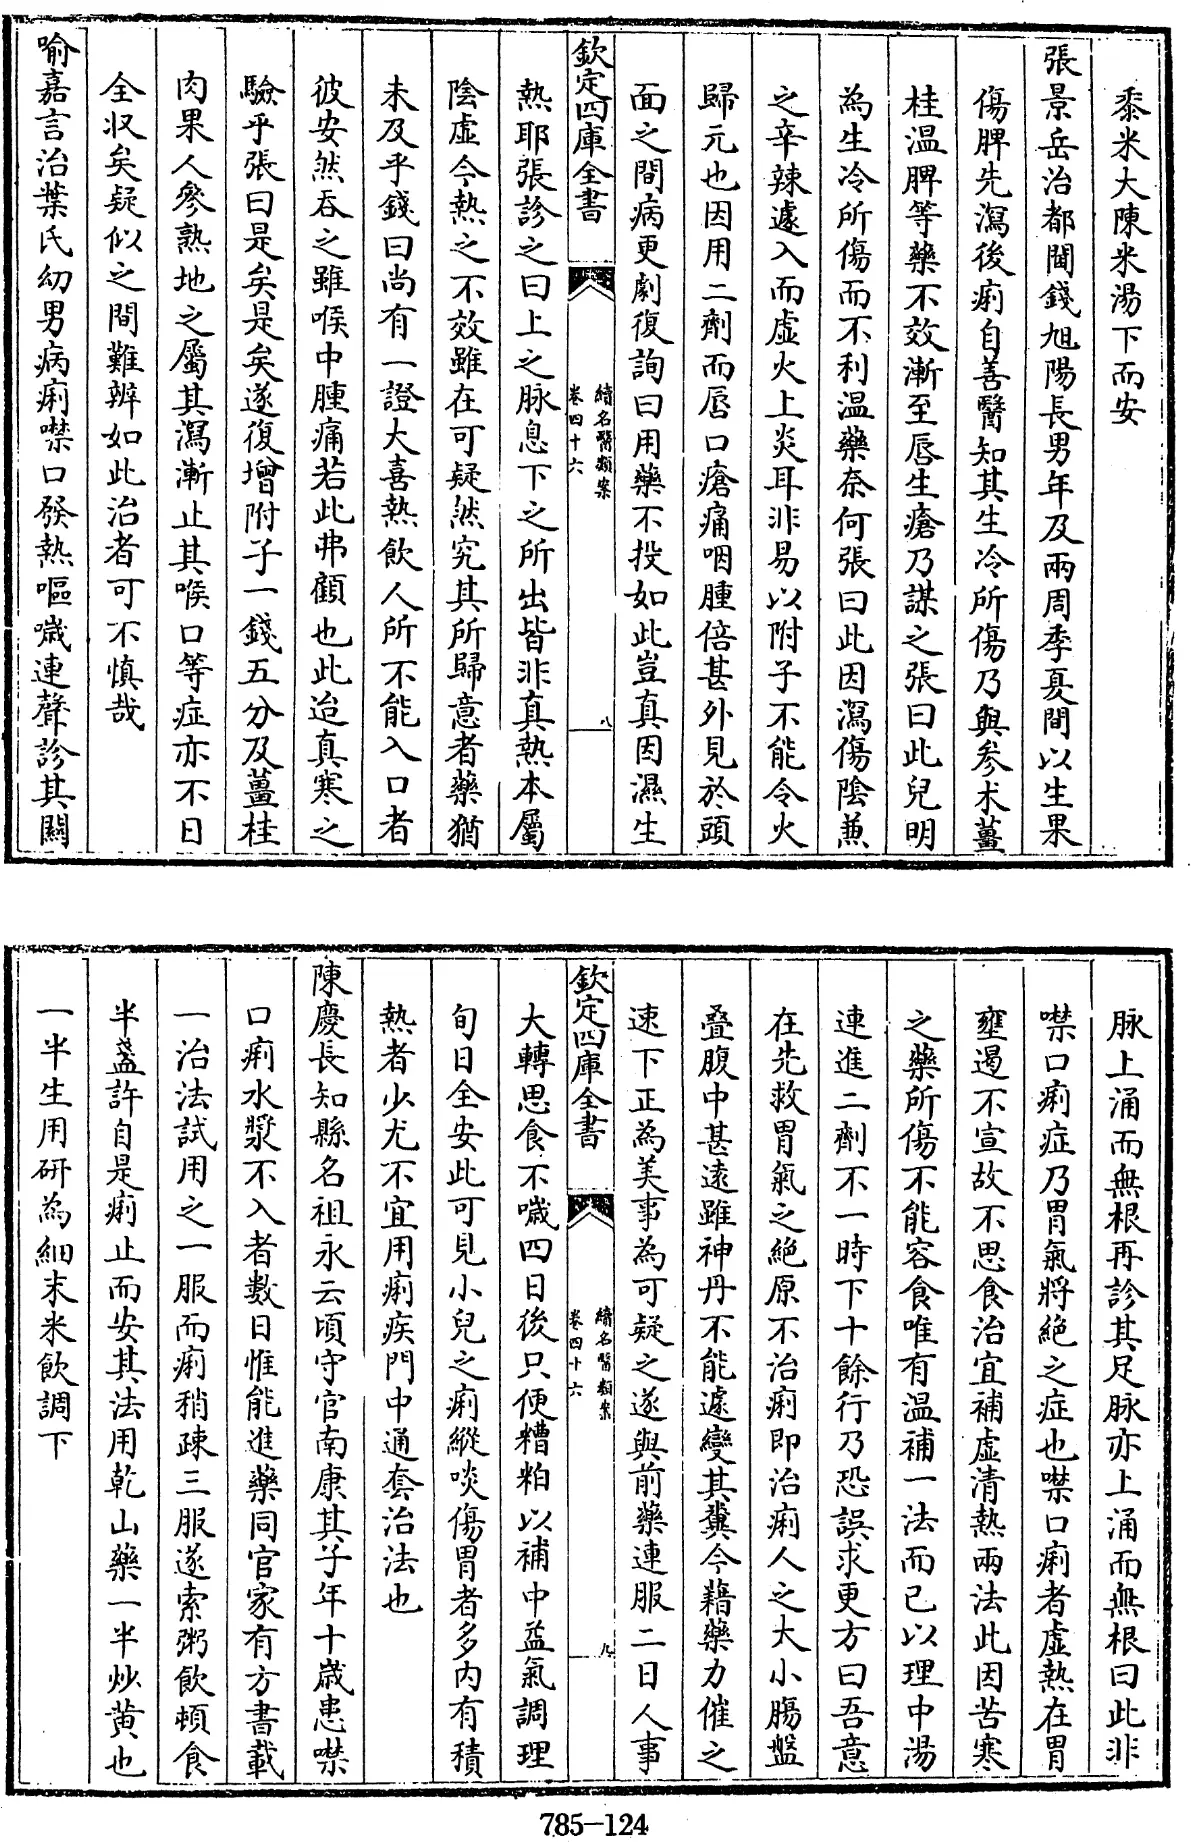 黍米大陳米湯下而安
張景岳治都閫錢旭陽長男年及兩周季夏間以生果
傷脾先瀉後痢自善醫知其生冷所傷乃與參朮薑
桂溫脾等藥不效漸至唇生瘡乃謀之張曰此兒明
為生冷所傷而不利溫藥奈何張曰此因瀉傷陰兼
之辛辣遽入而虛火上炎耳非易以附子不能令火
歸元也因用二劑而唇口瘡痛咽腫倍甚外見於頭
面之間病更劇復詢曰用藥不投如此豈真因濕生
欽定四庫全書
續名醫類案
卷四十六
八
熱耶張診之曰上之脉息下之所出皆非真熱本屬
陰虛今熱之不效雖在可疑然究其所歸意者藥猶
未及乎錢曰尚有一證大喜熱飲人所不能入口者
彼安然吞之雖喉中腫痛若此弗顧也此迨真寒之
驗乎張曰是矣是矣遂復增附子一錢五分及薑桂
肉果人參熟地之屬其瀉漸止其喉口等症亦不日
全収矣疑似之間難辨如此治者可不慎哉
喻嘉言治葉氏幼男病痢噤口發熱嘔噦連聲診其關
脉上涌而無根再診其足脉亦上涌而無根曰此非
噤口痢症乃胃氣將絶之症也噤口痢者虛熱在胃
壅遏不宣故不思食治宜補虛清熱兩法此因苦寒
之藥所傷不能容食唯有溫補一法而已以理中湯
連進二劑不一時下十餘行乃恐誤求更方曰吾意
在先救胃氣之絶原不治痢即治痢人之大小腸盤
疊腹中甚遠雖神丹不能遽變其糞今藉藥力催之
速下正為美事為可疑之遂與前藥連服二日人事
欽定四庫全書
續名醫類案
卷四十六
九
大轉思食不噦四日後只便糟粕以補中益氣調理
旬日全安此可見小兒之痢縱啖傷胃者多內有積
熱者少尤不宜用痢疾門中通套治法也
陳慶長知縣名祖永云頃守官南康其子年十歲患噤
口痢水漿不入者數日惟能進藥同官家有方書載
一治法試用之一服而痢稍疎三服遂索粥飲頓食
半盞許自是痢止而安其法用乾山藥一半炒黄也
一半生用研為細末米飲調下
785-124